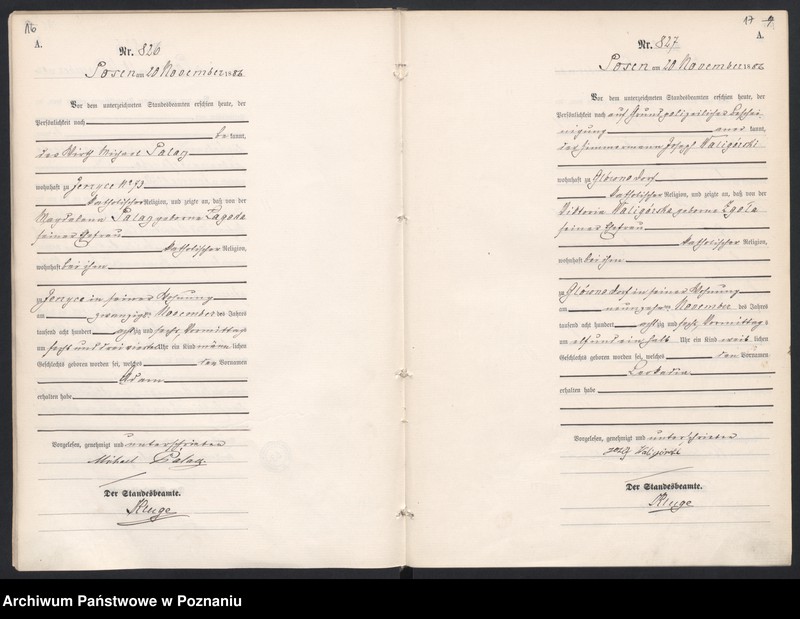 16
A.
Nr. 826
Posen am 20 November 1886
Vor dem unterzeichneten Standesbeamten erschien heute, der
Persönlichkeit nach
be kannt,
der Wirth Michael
wohnhaft zu Jerzyce No 93
katholischer Religion, und zeigte an, daß von der
Magdalena geborne
seiner Ehefrau
katholischer Religion,
wohnhaft bei ihm
zu Jerzyce in seiner Wohnung
am zwanzigsten November des Jahres
tausend acht hundert achtzig und sechs Vormittags
um sechs und drei viertel Uhr ein Kind männ lichen
Geschlechts geboren worden sei, welches den Vornamen
Adam
erhalten habe
Vorgelesen, genehmigt und unterschrieben
Michael
Der Standesbeamte.
Kluge
17
A.
Nr. 827
Posen am 20 November 1886
Vor dem unterzeichneten Standesbeamten erschien heute, der
Persönlichkeit nach auf Grund polizeilicher Beschei-
nigung aner kannt,
der Zimmermann Joseph Waligórski
wohnhaft zu Glówno Dorf
katholischer Religion, und zeigte an, daß von der
Viktoria Waligórska geborne
seiner Ehefrau
katholischer Religion,
wohnhaft bei ihm
zu Glówno Dorf in seiner Wohnung
am neunzehnten November des Jahres
tausend acht hundert achtzig und sechs Vormittags
um elf und ein halb Uhr ein Kind weib lichen
Geschlechts geboren worden sei, welches den Vornamen
Leokadia
erhalten habe
Vorgelesen, genehmigt und unterschrieben
Waligórski
Der Standesbeamte.
Kluge
Archiwum Państwowe w Poznaniu